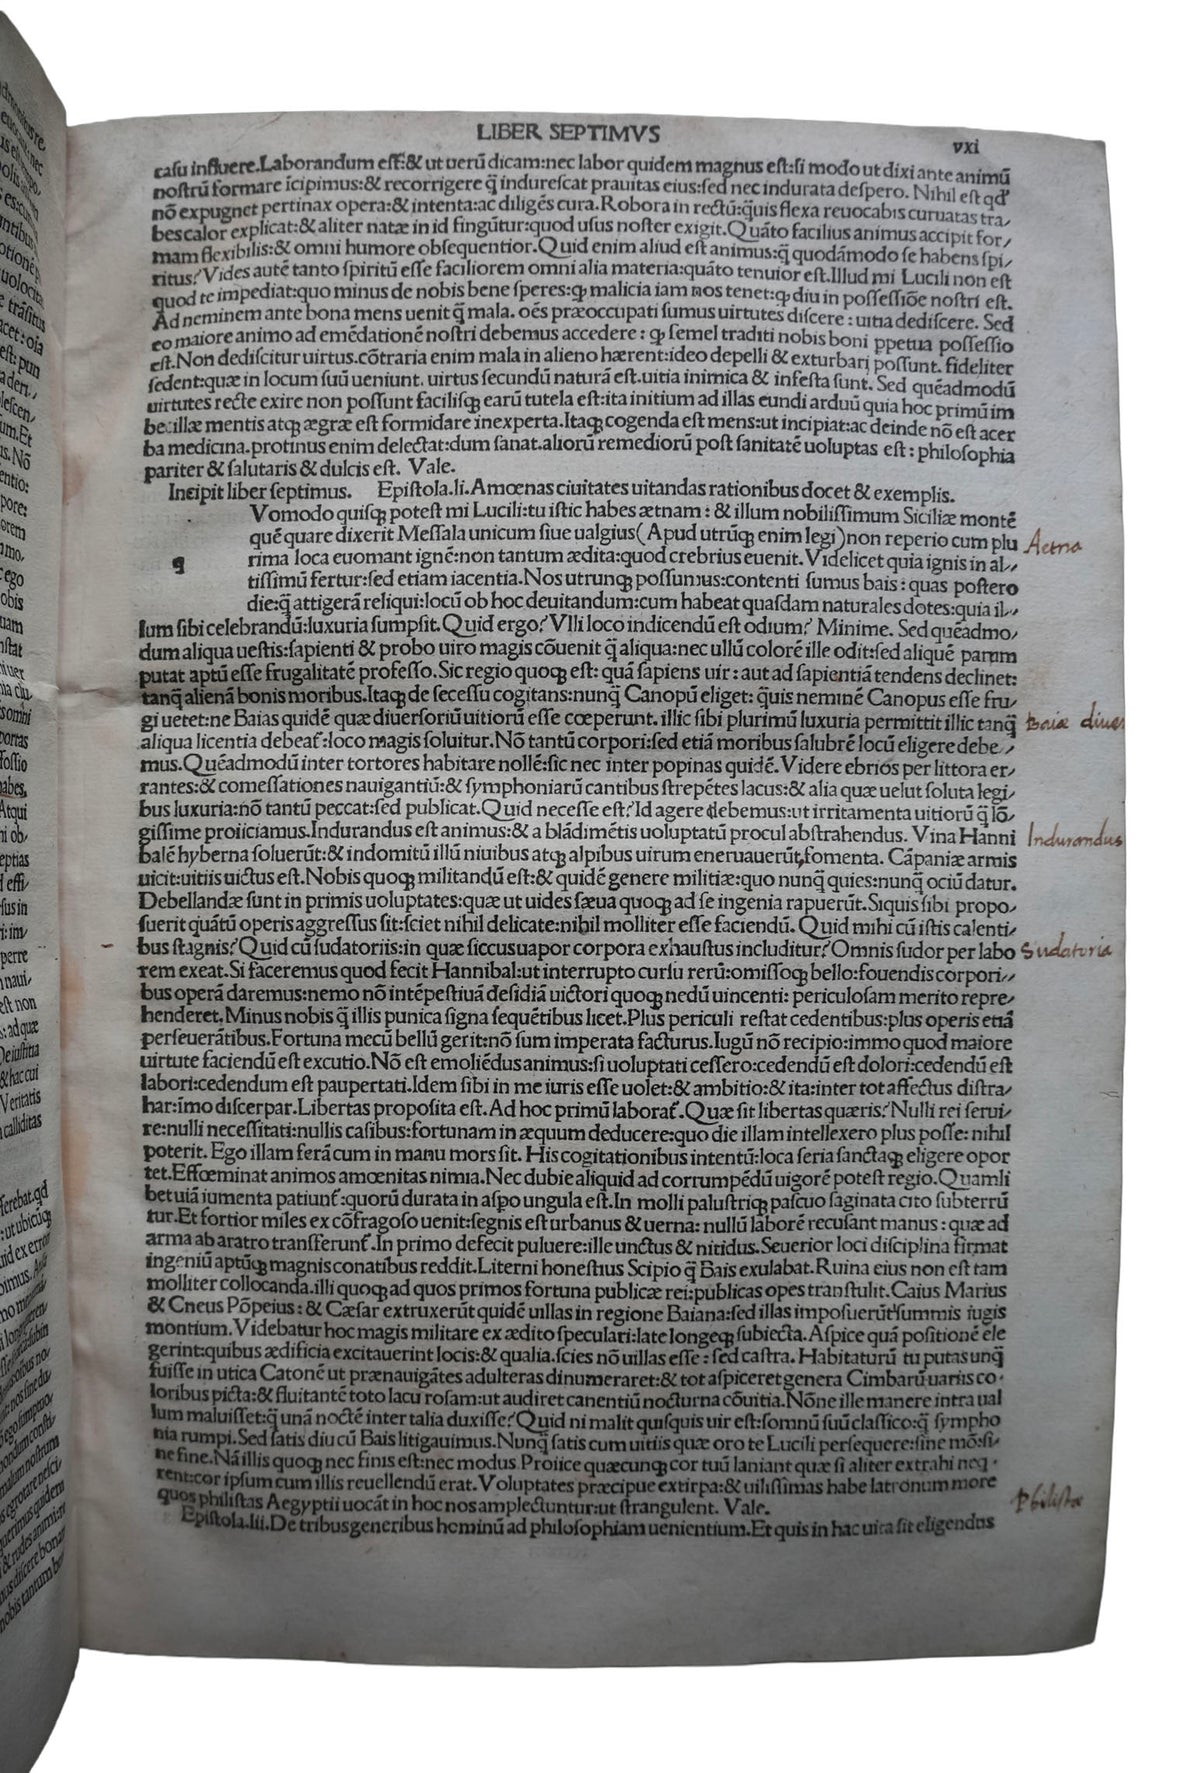 LIBER SEPTIMVS
vxi
casu influere.Laborandum est:& ut uerũ dicam:nec labor quidem magnus est:si modo ut dixi ante animũ
nostrũ formare ĩcipimus:& recorrigere q̃ indurescat prauitas eius:sed nec indurata despero. Nihil est qđ
nõ expugnet pertinax opera:& intenta:ac diligẽs cura. Robora in rectũ:q̃uis flexa reuocabis curuatas tra/
bes calor explicat:& aliter natæ in id fingũtur:quod usus noster exigit. Quãto facilius animus accipit for/
mam flexibilis:& omni humore obsequentior. Quid enim aliud est animus:q̃ quodãmodo se habens spi/
ritus? Vides autẽ tanto spiritũ esse faciliorem omni alia materia:quãto tenuior est.Illud mi Lucili non est
quod te impediat:quo minus de nobis bene speres:ꝙ malicia iam nos tenet:ꝙ diu in possessiõe nostri est.
Ad neminem ante bona mens uenit q̃ mala. oẽs præoccupati sumus uirtutes discere : uitia dediscere. Sed
eo maiore animo ad emẽdationẽ nostri debemus accedere : ꝙ semel traditi nobis boni ꝑpetua possessio
est.Non dediscitur uirtus.cõtraria enim mala in alieno hærent:ideo depelli & exturbari possunt. fideliter
sedent:quæ in locum suũ ueniunt. uirtus secundũ naturã est.uitia inimica & infesta sunt. Sed quẽadmodũ
uirtutes recte exire non possunt facilisqꝫ earũ tutela est:ita initium ad illas eundi arduũ quia hoc primũ im
becillæ mentis atqꝫ ægræ est formidare inexperta. Itaqꝫ cogenda est mens:ut incipiat:ac deinde nõ est acer
ba medicina.protinus enim delectat:dum sanat.aliorũ remediorũ post sanitatẽ uoluptas est : philosophia
pariter & salutaris & dulcis est. Vale.
Incipit liber septimus. Epistola.li.Amœnas ciuitates uitandas rationibus docet & exemplis.
q Vomodo quisqꝫ potest mi Lucili:tu istic habes ætnam : & illum nobilissimum Siciliæ montẽ
quẽ quare dixerit Messala unicum siue ualgius(Apud utrũqꝫ enim legi)non reperio cum plu
Aetna
rima loca euomant ignẽ:non tantum ædita:quod crebrius euenit. Videlicet quia ignis in al/
tissimũ fertur:sed etiam iacentia. Nos utrunqꝫ possumus:contenti sumus bais : quas postero
die:q̃ attigerã reliqui:locũ ob hoc deuitandum:cum habeat quasdam naturales dotes:quia il/
lum sibi celebrandũ:luxuria sumpsit. Quid ergo? Vlli loco indicendũ est odium? Minime. Sed quẽadmo/
dum aliqua uestis:sapienti & probo uiro magis cõuenit q̃ aliqua:nec ullũ colorẽ ille odit:sed aliquẽ parum
putat aptũ esse frugalitatẽ professo. Sic regio quoqꝫ est: quã sapiens uir : aut ad sapientiã tendens declinet:
tanq̃ alienã bonis moribus.Itaqꝫ de secessu cogitans:nunq̃ Canopũ eliget: q̃uis neminẽ Canopus esse fru/
gi uetet:ne Baias quidẽ quæ diuersoriũ uitiorũ esse cœperunt. illic sibi plurimũ luxuria permittit illic tanq̃
Baiæ diuer
aliqua licentia debeat̃:loco magis soluitur. Nõ tantũ corpori:sed etiã moribus salubrẽ locũ eligere debe/
mus.Quẽadmodũ inter tortores habitare nollẽ:sic nec inter popinas quidẽ. Videre ebrios per littora er/
rantes:& comessationes nauigantiũ:& symphoniarũ cantibus strepẽtes lacus:& alia quæ uelut soluta legi/
bus luxuria:nõ tantũ peccat:sed publicat. Quid necesse est? Id agere debemus:ut irritamenta uitiorũ q̃ lõ/
gissime proiiciamus.Indurandus est animus:& a blãdimẽtis uoluptatũ procul abstrahendus. Vina Hanni
Indurandus
balẽ hyberna soluerũt:& indomitũ illũ niuibus atqꝫ alpibus uirum eneruauerũt,fomenta. Cãpaniæ armis
uicit:uitiis uictus est. Nobis quoqꝫ militandũ est:& quidẽ genere militiæ:quo nunq̃ quies:nunq̃ ociũ datur.
Debellandæ sunt in primis uoluptates:quæ ut uides sæua quoqꝫ ad se ingenia rapuerũt. Siquis sibi propo/
suerit quãtũ operis aggressus sit:sciet nihil delicate:nihil molliter esse faciendũ. Quid mihi cũ istis calenti/
bus stagnis? Quid cũ sudatoriis:in quæ siccus uapor corpora exhaustus includitur? Omnis sudor per labo
Sudatoria
rem exeat. Si faceremus quod fecit Hannibal:ut interrupto cursu rerũ:omissoqꝫ bello:fouendis corpori/
bus operã daremus:nemo nõ intẽpestiuã desidiã uictori quoqꝫ nedũ uincenti: periculosam merito repre/
henderet.Minus nobis q̃ illis punica signa sequẽtibus licet.Plus periculi restat cedentibus:plus operis etiã
perseuerãtibus. Fortuna mecũ bellũ gerit:nõ sum imperata facturus. Iugũ nõ recipio:immo quod maiore
uirtute faciendũ est excutio. Nõ est emoliẽdus animus:si uoluptati cessero:cedendũ est dolori:cedendũ est
labori:cedendum est paupertati.Idem sibi in me iuris esse uolet:& ambitio:& ita:inter tot affectus distra/
har:imo discerpar.Libertas proposita est. Ad hoc primũ laborat̃. Quæ sit libertas quæris? Nulli rei serui/
re:nulli necessitati:nullis casibus:fortunam in æquum deducere:quo die illam intellexero plus posse: nihil
poterit. Ego illam ferã cum in manu mors sit. His cogitationibus intentũ:loca seria sanctaqꝫ eligere opor
tet.Effœminat animos amœnitas nimia. Nec dubie aliquid ad corrumpẽdũ uigorẽ potest regio. Quamli
bet uiã iumenta patiunt̃:quorũ durata in aspo ungula est.In molli palustriqꝫ pascuo saginata cito subterrũ
tur.Et fortior miles ex cõfragoso uenit:segnis est urbanus & uerna: nullũ laborẽ recusant manus : quæ ad
arma ab aratro transferunt̃.In primo defecit puluere:ille unctus & nitidus. Seuerior loci disciplina firmat
ingeniũ aptũqꝫ magnis conatibus reddit. Literni honestius Scipio q̃ Bais exulabat. Ruina eius non est tam
molliter collocanda.illi quoqꝫ ad quos primos fortuna publicæ rei:publicas opes transtulit. Caius Marius
& Cneus Põpeius : & Cæsar extruxerũt quidẽ uillas in regione Baiana:sed illas imposuerũt summis iugis
montium. Videbatur hoc magis militare ex ædito speculari:late longeqꝫ subiecta. Aspice quã positionẽ ele
gerint:quibus ædificia excitauerint locis:& qualia.scies nõ uillas esse : sed castra. Habitaturũ tu putas unq̃
fuisse in utica Catonẽ ut prænauigãtes adulteras dinumeraret:& tot aspiceret genera Cimbarũ uariis co
loribus picta:& fluitantẽ toto lacu rosam:ut audiret canentiũ nocturna cõuitia. Nõne ille manere intra ual
lum maluisset:q̃ unã noctẽ inter talia duxisse? Quid ni malit quisquis uir est:somnũ suũ classico:q̃ sympho
nia rumpi. Sed satis diu cũ Bais litigauimus. Nunq̃ satis cum uitiis quæ oro te Lucili persequere:sine mõ:si/
ne fine. Nã illis quoqꝫ nec finis est:nec modus. Proiice quæcunqꝫ cor tuũ laniant quæ si aliter extrahi neq
rent:cor ipsum cum illis reuellendũ erat. Voluptates præcipue extirpa:& uilissimas habe latronum more
quos philistas Aegyptii uocãt in hoc nos amplectuntur:ut strangulent. Vale.
Philistæ
Epistola.lii. De tribus generibus hominũ ad philosophiam uenientium. Et quis in hac uita sit eligendus